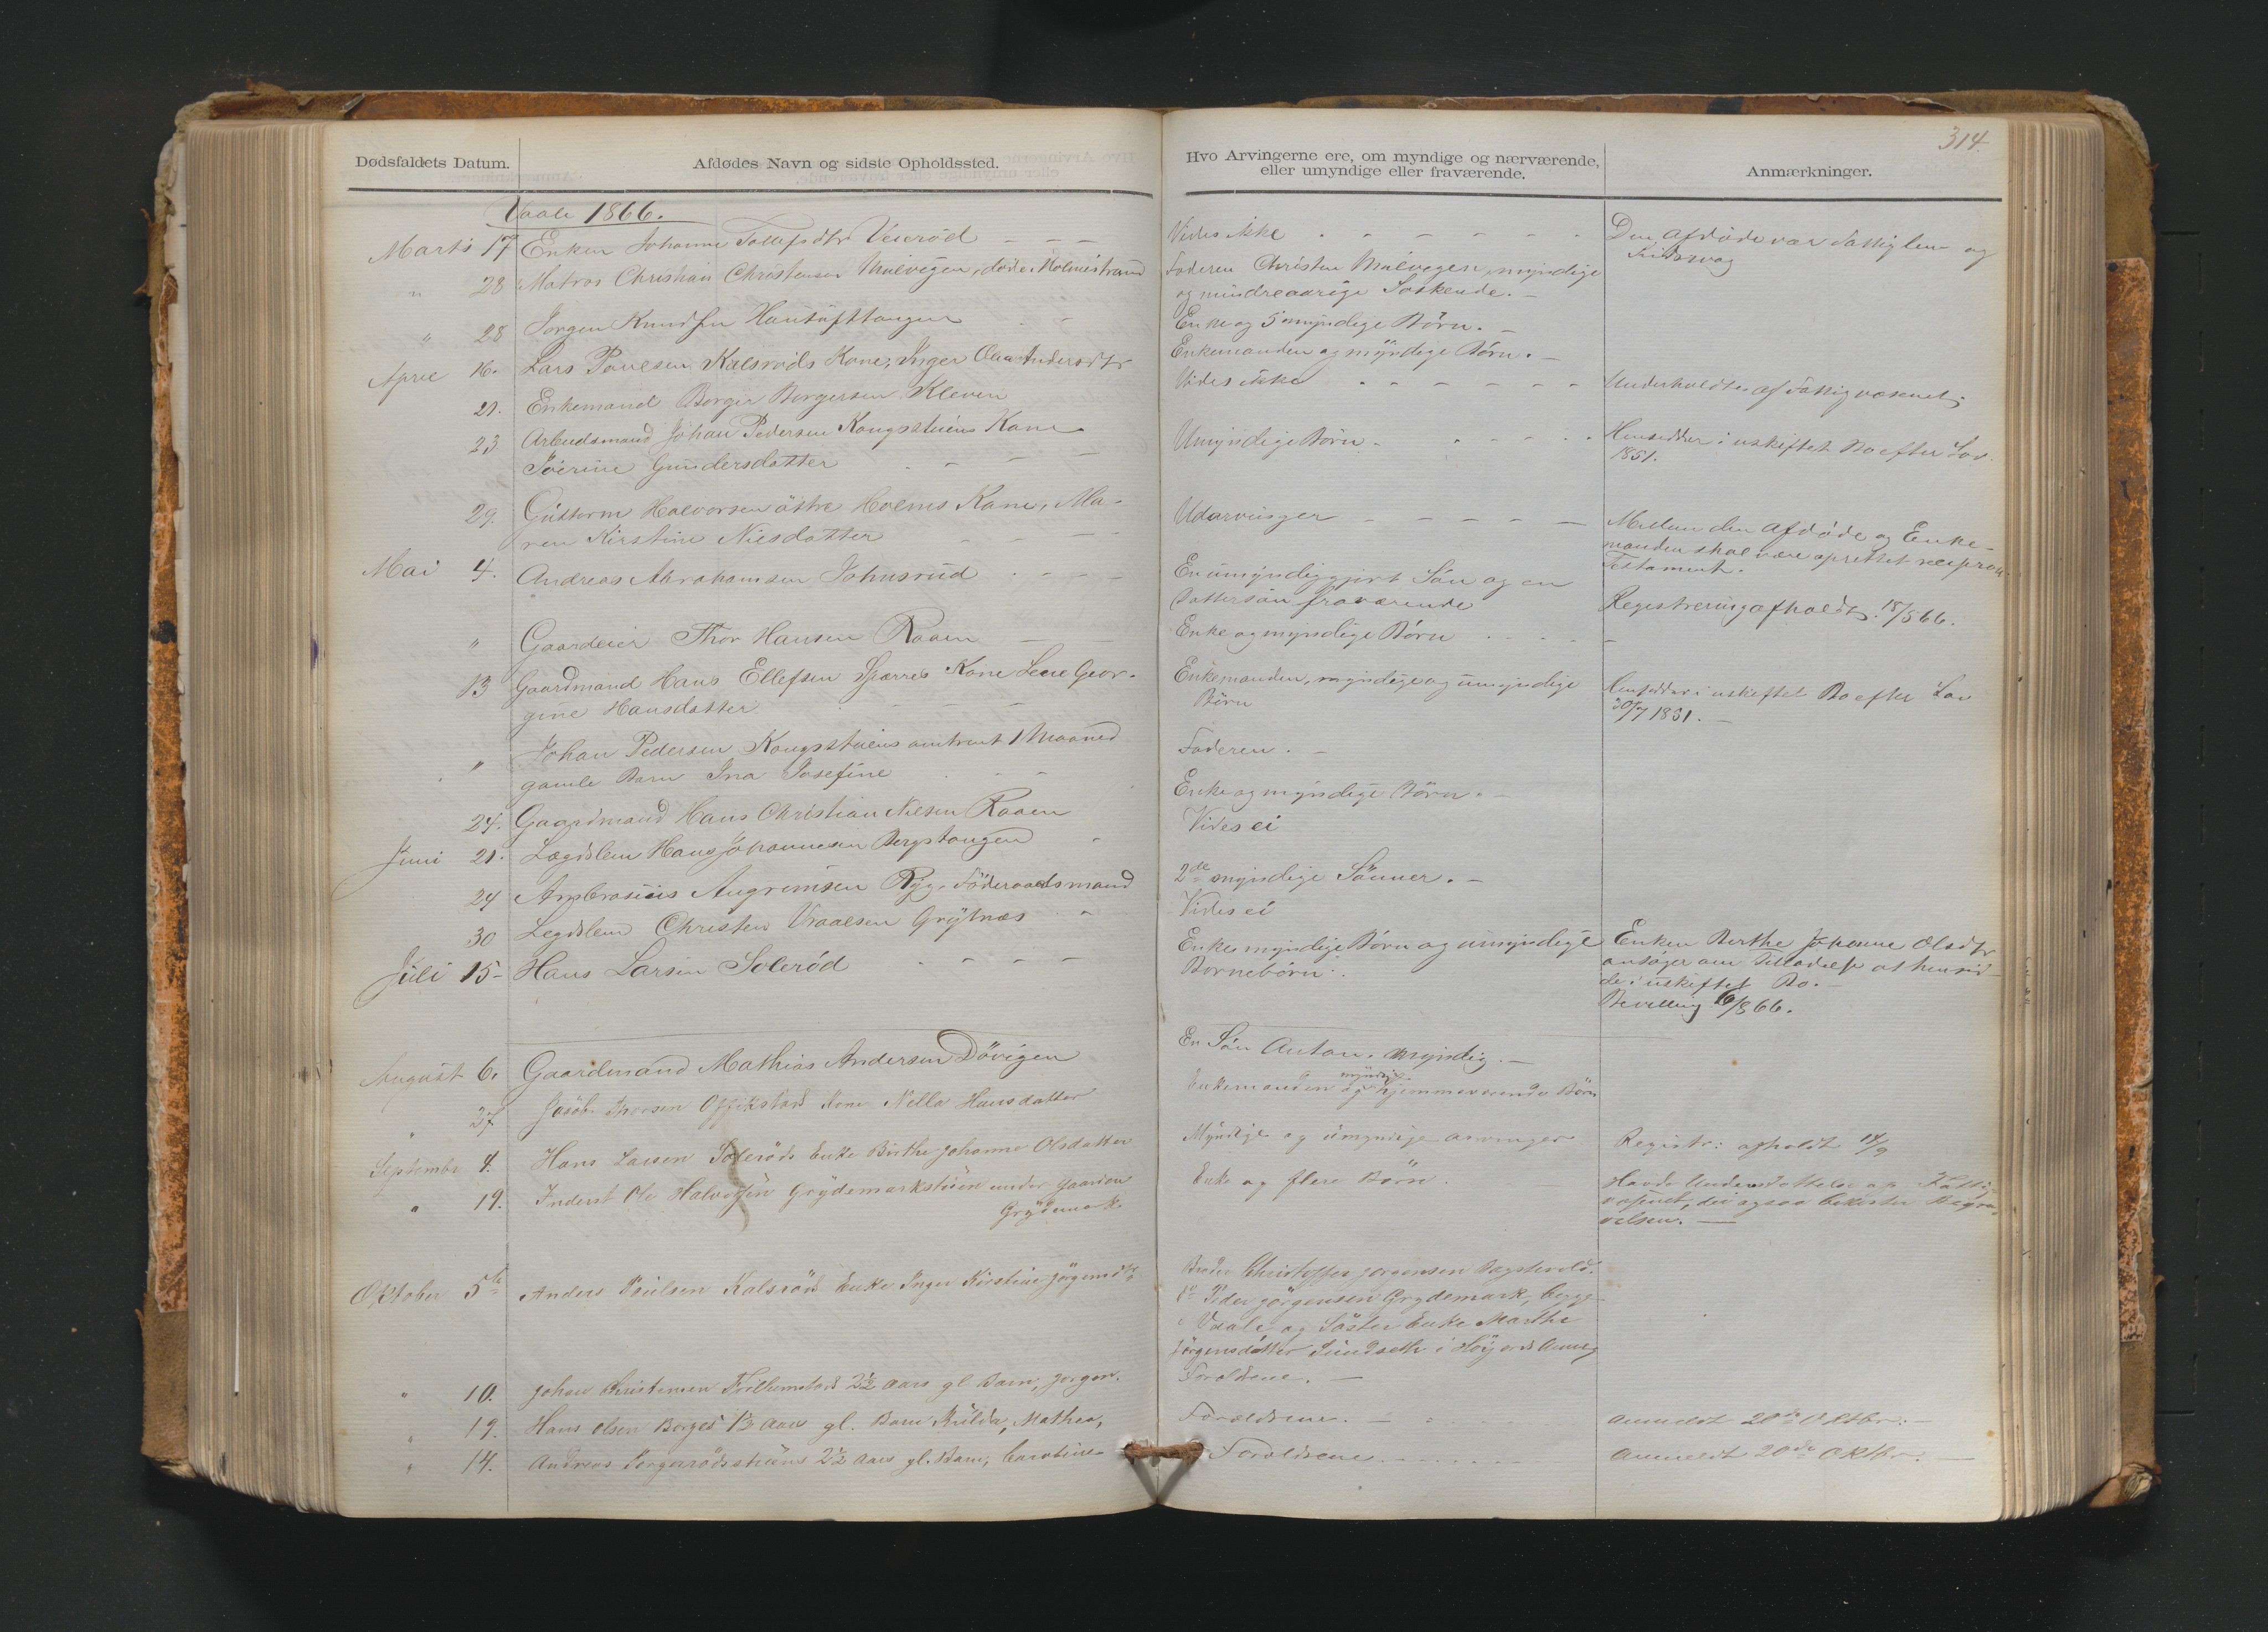 314
Dødsfaldets Datum.
Afdødes Navn og sidste Opholdssted.
Hvo Arvingerne ere, om myndige og nærværende,
eller umyndige eller fraværende.
Anmærkninger.
Vaale 1866.
Marts 17 Enken Johanne Tollefsdtr Veierød - - -
Vides ikke - - - - - -
Den Afdøde var Fattiglem og
" 28 Matros Christian Christensen Mulvegen, døde i Holmestrand
Faderen Christen Mulvegen, myndige
og mindreaarige Søskende. -
" 28 Jørgen Knudsen
Enke og 5 myndige Børn. -
April 16. Lars Paulsen Kalsrøds Kone, Inger Olea Andersdtr
Enkemanden og myndige Børn. -
21. Enkemand Borger Borgersen Kleven
Vides ikke - - - - - -
Underholdtes af Fattigvæsenet.
23 Arbeidsmand Johan Pedersen Kongsstuens Kone
Sørine Gundersdatter - - - -
Umyndige Børn - - - - -
Hensidder i uskiftet Bo efter Lov
1851.
29. Guttorm Halvorsen østre Holms Kone, Ma-
ren Kirstine Nilsdatter - - -
Udarvinger - - - - -
Mellem den Afdøde og Enke-
manden skal være oprettet reciproc.
Testament.
Mai 4. Andreas Abrahamsen Johnsrud - - - -
En umyndiggjort Søn og en
Dattersøn fraværende
Registrering afholdt 18/5 66.
" Gaardeier Thor Hansen Raaen - -
Enke og myndige Børn - - - - -
13 Gaardmand Hans Ellefsen Kone Lene Geor-
gine Hansdatter - - -
Enkemanden, myndige og umyndige
Børn
Hensidder i uskiftet Bo efter Lov
30/7 1851. -
" Johan Pedersen Kongsstuens omtrent 1 Maaned
gamle Barn Ina Josefine - - -
Faderen. -
24. Gaardmand Hans Christian Nilsen Raaen
Enke og myndige Børn. -
Juni 21. Lægdslem Hans Johannesen Bergstangen -
Vides ei
24 Ambrosius Angrimsen Ryg, Føderaadsmand
2de myndige Sønner. -
30 Legdslem Christen Vraalsen Grytnæs -
Vides ei
Juli 15- Hans Larsen Solerød - - - -
Enke, myndige Børn og umyndige
Børnebørn.
Enken Berthe Johanne Olsdtr
ansøger om Tilladelse at hensid-
de i uskiftet Bo. -
Bevilling 16/8 66.
August 6. Gaardmand Mathias Andersen Døvigen
En Søn Anton. myndig. -
" 27 Jacob Thorsen Kone Nella Hansdatter
myndige
Enkemanden og hjemmeværende Børn
September 4. Hans Larsen Solerøds Enke Birthe Johanne Olsdatter
Myndige og umyndige Arvinger
Registr: afholdt 14/9
" 19. Inderst Ole Halvorsen Grydemarkstuen under Gaarden
Grydemark
Enke og flere Børn.
Havde Understøttelse af Fattig-
væsenet, der ogsaa bekoster Begra-
velsen. -
Oktober 5te Anders Poulsen Kalsrøds Enke Inger Kirstine Jørgensdtr
Brødre Christoffer Jørgensen
Peder Jørgensen Grydemark, begge
i Vaale og Søster Enke Marthe
Jørgensdatter Sundseth i Høyjords Annex
" 10. Johan Christensen 2½ Aars gl Barn, Jørgen.
Forældrene. -
" 19. Hans Olsen Borges 1½ Aars gl. Barn Hulda, Mathea,
Forældrene. - -
Anmeldt 20de Oktbr. -
" 14. Andreas 2½ Aars gl. Barn, Caroline
Forældrene - - - - -
Anmeldt 20de Oktbr. -